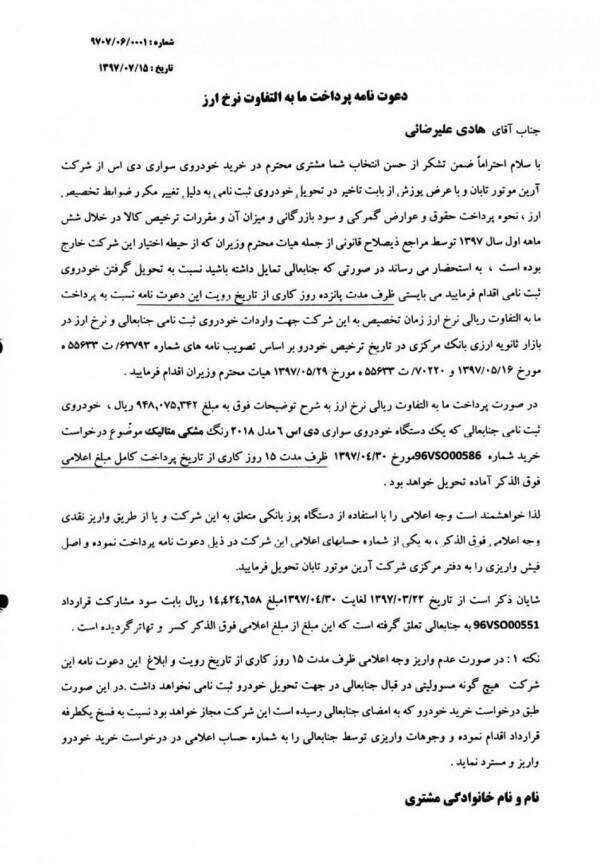 شماره : ۹۷۰۷/۰۶/۰۰۰۱
تاریخ : ۱۳۹۷/۰۷/۱۵
دعوت نامه پرداخت ما به التفاوت نرخ ارز
جناب آقای هادی علیرضائی
با سلام احتراماً ضمن تشکر از حسن انتخاب شما مشتری محترم در خرید خودروی سواری دی اس از شرکت
آرین موتور تابان و با عرض پوزش از بابت تاخیر در تحویل خودروی ثبت نامی به دلیل تغییر مکرر ضوابط تخصیص
ارز ، نحوه پرداخت حقوق و عوارض گمرکی و سود بازرگانی و میزان آن و مقررات ترخیص کالا در خلال شش
ماهه اول سال ۱۳۹۷ توسط مراجع ذیصلاح قانونی از جمله هیات محترم وزیران که از حیطه اختیار این شرکت خارج
بوده است ، به استحضار می رساند در صورتی که جنابعالی تمایل داشته باشید نسبت به تحویل گرفتن خودروی
ثبت نامی اقدام فرمایید می بایستی ظرف مدت پانزده روز کاری از تاریخ رویت این دعوت نامه نسبت به پرداخت
ما به التفاوت ریالی نرخ ارز زمان تخصیص به این شرکت جهت واردات خودروی ثبت نامی جنابعالی و نرخ ارز در
بازار ثانویه ارزی بانک مرکزی در تاریخ ترخیص خودرو بر اساس تصویب نامه های شماره ۶۳۷۹۳/ ت ۵۵۶۳۳ ه
مورخ ۱۳۹۷/۰۵/۱۶ و ۷۰۲۲۰/ ت ۵۵۶۳۳ ه مورخ ۱۳۹۷/۰۵/۲۹ هیات محترم وزیران اقدام فرمایید .
در صورت پرداخت ما به التفاوت ریالی نرخ ارز به شرح توضیحات فوق به مبلغ ۹۴۸,۰۷۵,۳۴۲ ریال ، خودروی
ثبت نامی جنابعالی که یک دستگاه خودروی سواری دی اس ۶ مدل ۲۰۱۸ رنگ مشکی متالیک موضوع درخواست
خرید شماره 96VSO00586 مورخ ۱۳۹۷/۰۴/۳۰ ظرف مدت ۱۵ روز کاری از تاریخ پرداخت کامل مبلغ اعلامی
فوق الذکر آماده تحویل خواهد بود .
لذا خواهشمند است وجه اعلامی را با استفاده از دستگاه پوز بانکی متعلق به این شرکت و یا از طریق واریز نقدی
وجه اعلامی فوق الذکر ، به یکی از شماره حسابهای اعلامی این شرکت در ذیل دعوت نامه پرداخت نموده و اصل
فیش واریزی را به دفتر مرکزی شرکت آرین موتور تابان تحویل فرمایید.
شایان ذکر است از تاریخ ۱۳۹۷/۰۳/۲۲ لغایت ۱۳۹۷/۰۴/۳۰مبلغ ۱۴,۴۲۴,۶۵۸ ریال بابت سود مشارکت قرارداد
96VSO00551 به جنابعالی تعلق گرفته است که این مبلغ از مبلغ اعلامی فوق الذکر کسر و تهاتر گردیده است .
نکته ۱ : در صورت عدم واریز وجه اعلامی ظرف مدت ۱۵ روز کاری از تاریخ رویت و ابلاغ این دعوت نامه این
شرکت هیچ گونه مسوولیتی در قبال جنابعالی در جهت تحویل خودرو ثبت نامی نخواهد داشت .در این صورت
طبق درخواست خرید خودرو که به امضای جنابعالی رسیده است این شرکت مجاز خواهد بود نسبت به فسخ یکطرفه
قرارداد اقدام نموده و وجوهات واریزی توسط جنابعالی را به شماره حساب اعلامی در درخواست خرید خودرو
واریز و مسترد نماید .
نام و نام خانوادگی مشتری